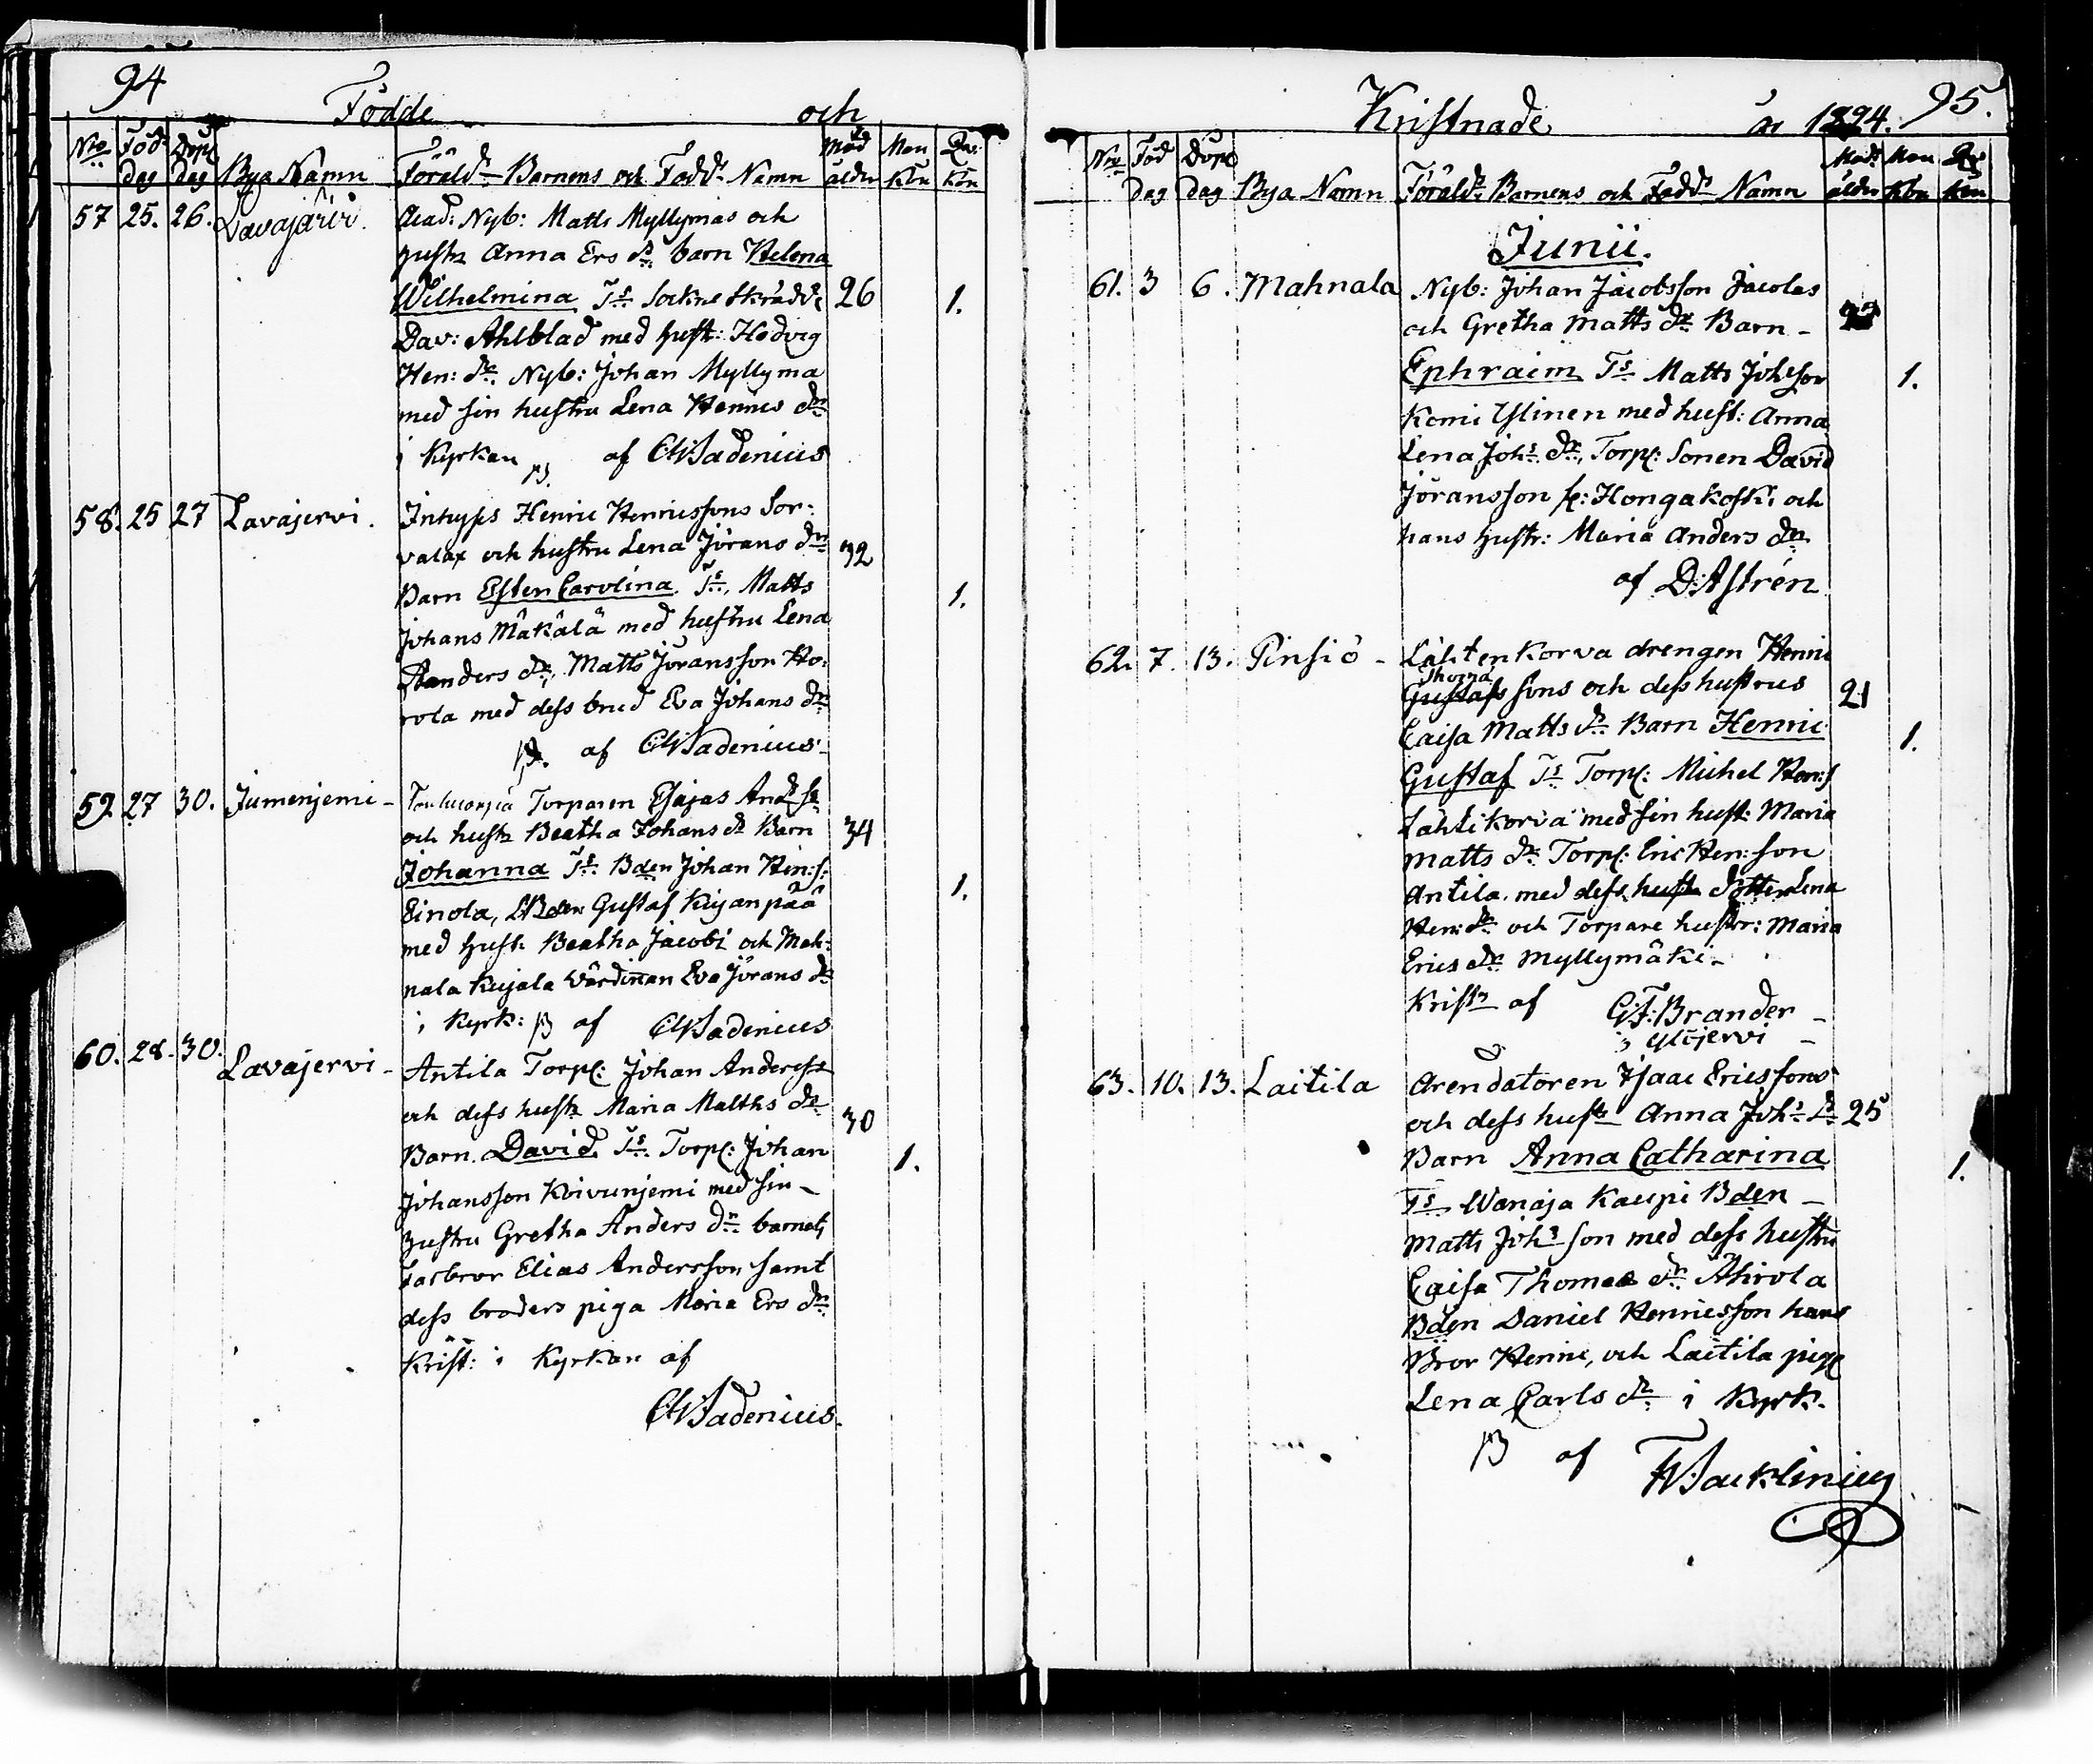 94
Födde och
Nro Föd: dag Döpe dag Bya Namn Föräld:r Barnens och Fadd:r Namn Mod ålder Man Kön Qv: Kön
57 25. 26. Lavajärvi. Acad: Nyb: Matts Myllymäs och
hustr Anna Ers dr. barn Helena
Wilhelmina Ts Sockne Skrädd: 26 1.
Dav: Ahlblad med hust: Hedvig
Hen: dr. Nyb: Johan Myllymä
med sin hustru Lena Henrics dr
i Kyrkan af CWSadenius
58. 25 27 Lavajervi. Inhyses Henric Henricssons Sor-
valax och hustru Lena Jörans dr 32
Barn Esten Carolina. Ts. Matts 1.
Johans Mäkälä med hustru Lena
Anders dr, Matts Jöransson Ho-
rola med dess brud Eva Johans dr
af CWSadenius
59 27 30. Jumenjemi - Torparen Esajas And:s
och hustr Beatha Johans dr Barn 34
Johanna Ts. Bden Johan Hin:s: 1.
Einola, Bden Gustaf Kujanpää
med hust. Beatha Jacobi och Mah-
nala Kujala Värdinnan Eva Jörans dr
i Kyrk: af CWSadenius
60. 28. 30. Lavajervi - Antila Torp: Johan Anderss
och dess hustr Maria Matths dr 30
Barn. David. Ts. Torp: Johan 1.
Johansson Koivunjemi med sin -
hustru Gretha Anders dr barnets
farbror Elias Andersson samt
dess broders piga Maria Ers dr
Krist: i Kyrkan af
CWSadenius.
Kristnade år 1824. 95.
Nro Föd Dag Döpe dag Bya Namn Föräld:r Barnens och Fadd:r Namn Mod:r ålder Man Kön Qv Kön
Junii.
61. 3 6. Mahnala Nyb: Johan Jacobsson Jacolas
och Gretha Matts dr. Barn -
Ephraim Ts Matts Johsson 1.
Komi Yslinen med hust: Anna
Lena Johs. dr, Torp: Sonen David
Jöransson fr: Hongakoski och
hans hustr: Maria Anders dr
af D:Astrén
62. 7. 13. Pinsiö - Lähtenkorva drengen Henric
Thoma
Gustafssons och dess hustrus 21
Caisa Matts dr. Barn Henric 1.
Gustaf Ts Torp: Michel Hen:s
Lähtikorva med sin hust: Maria
Matts dr. Torp: Eric Hen:son
Antila. med dess hustr dotter Lena
Hen: dr. och Torpare hustr: Maria
Erics dr. Myllymäki -
Kristn af GF:Brander -
i Ylöjervi -
63. 10. 13. Laitila Arendatoren Isaac Ericssons
och dess hustr Anna Johs. dr 25
Barn Anna Catharina 1.
Ts Wanaja Kaupi Bden -
Matts Johs son med dess hustru
Caisa Thomas dr. Ähirola
Bden Daniel Henricsson hans
Bror Henric, och Laitila pig:
Lena Carls dr. i Kyrk.
af